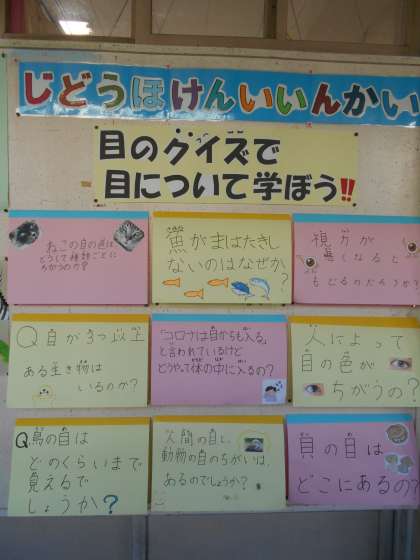 じどうほけんいいんかい
目のクイズで
目について学ぼう!!
ねこの目の色は
どうして種類ごとに
ちがうのか?
魚がまばたきし
ないのはなぜか?
視力が
悪くなると
もどるのだろうか?
Q目が3つ以上
ある生き物は
いるのか?
「コロナは目からも入る」
と言われているけど
どうやって体の中に入るの?
人によって
目の色が
ちがうの?
Q鳥の目は
どのくらいまで
見えるで
しょうか?
人間の目と
動物の目のちがいは、
あるのでしょうか?
貝の目は
どこにあるの?